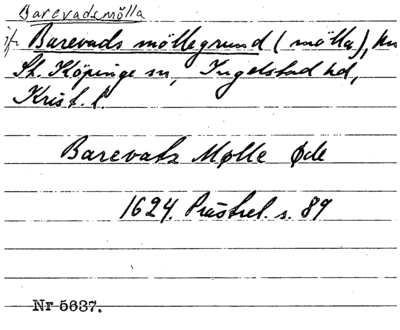 Barevadsmölla
jfr Barevads möllegrund (mölla), hn
St. Köpinge sn, Ingelstad hd,
Krist. l.
Barevatz Mølle Øde
1624. Prästrel. s. 89
Nr 5637.